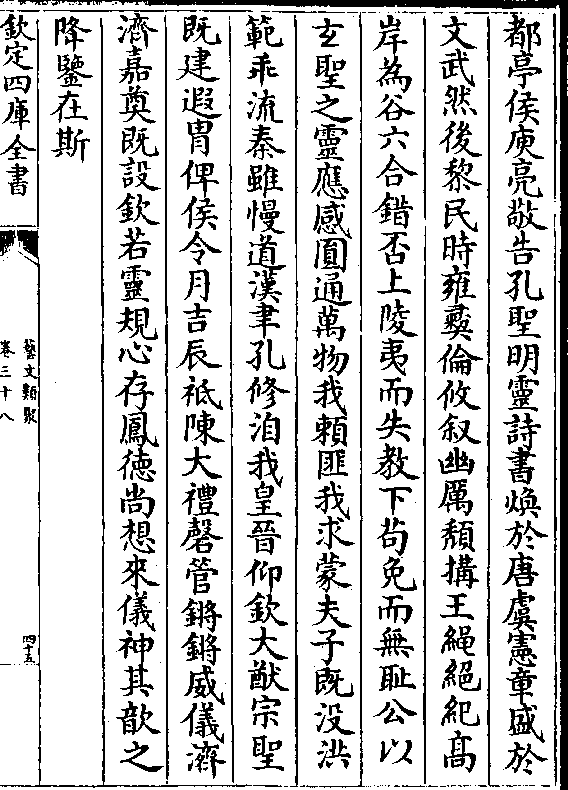 都亭侯庾亮敬告孔聖明靈詩書煥於唐虞憲章盛於
文武然後黎民時雍彛倫攸叙幽厲頹搆王繩絕紀髙
岸為谷六合錯否上陵夷而失教下苟免而無恥公以
玄聖之靈應感圎通萬物我頼匪我求蒙夫子既没洪
範乖流秦雖慢道漢聿孔修洎我皇晉仰欽大猷宗聖
既建遐胄俾侯令月吉辰祗陳大禮磬管鏘鏘威儀濟
濟嘉奠既設欽若靈規心存鳳德尚想來儀神其歆之
降鑒在斯
欽定四庫全書
藝文類聚
卷三十八
四十五